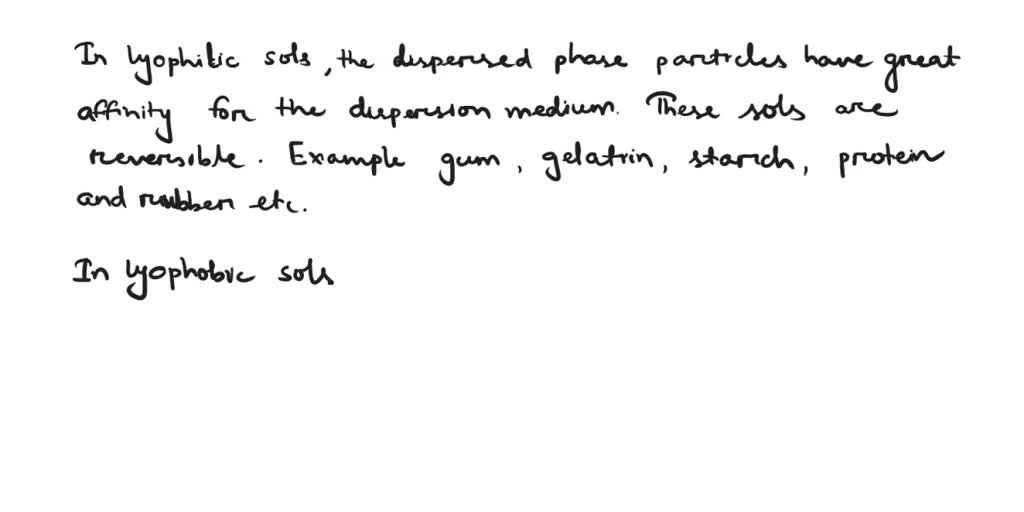 In lyophilic sols, the dispersed phase particles have great
affinity for the dispersion medium. These sols are
reversible. Example gum, gelatin, starch, protein
and rubber etc.
In lyophobic sols